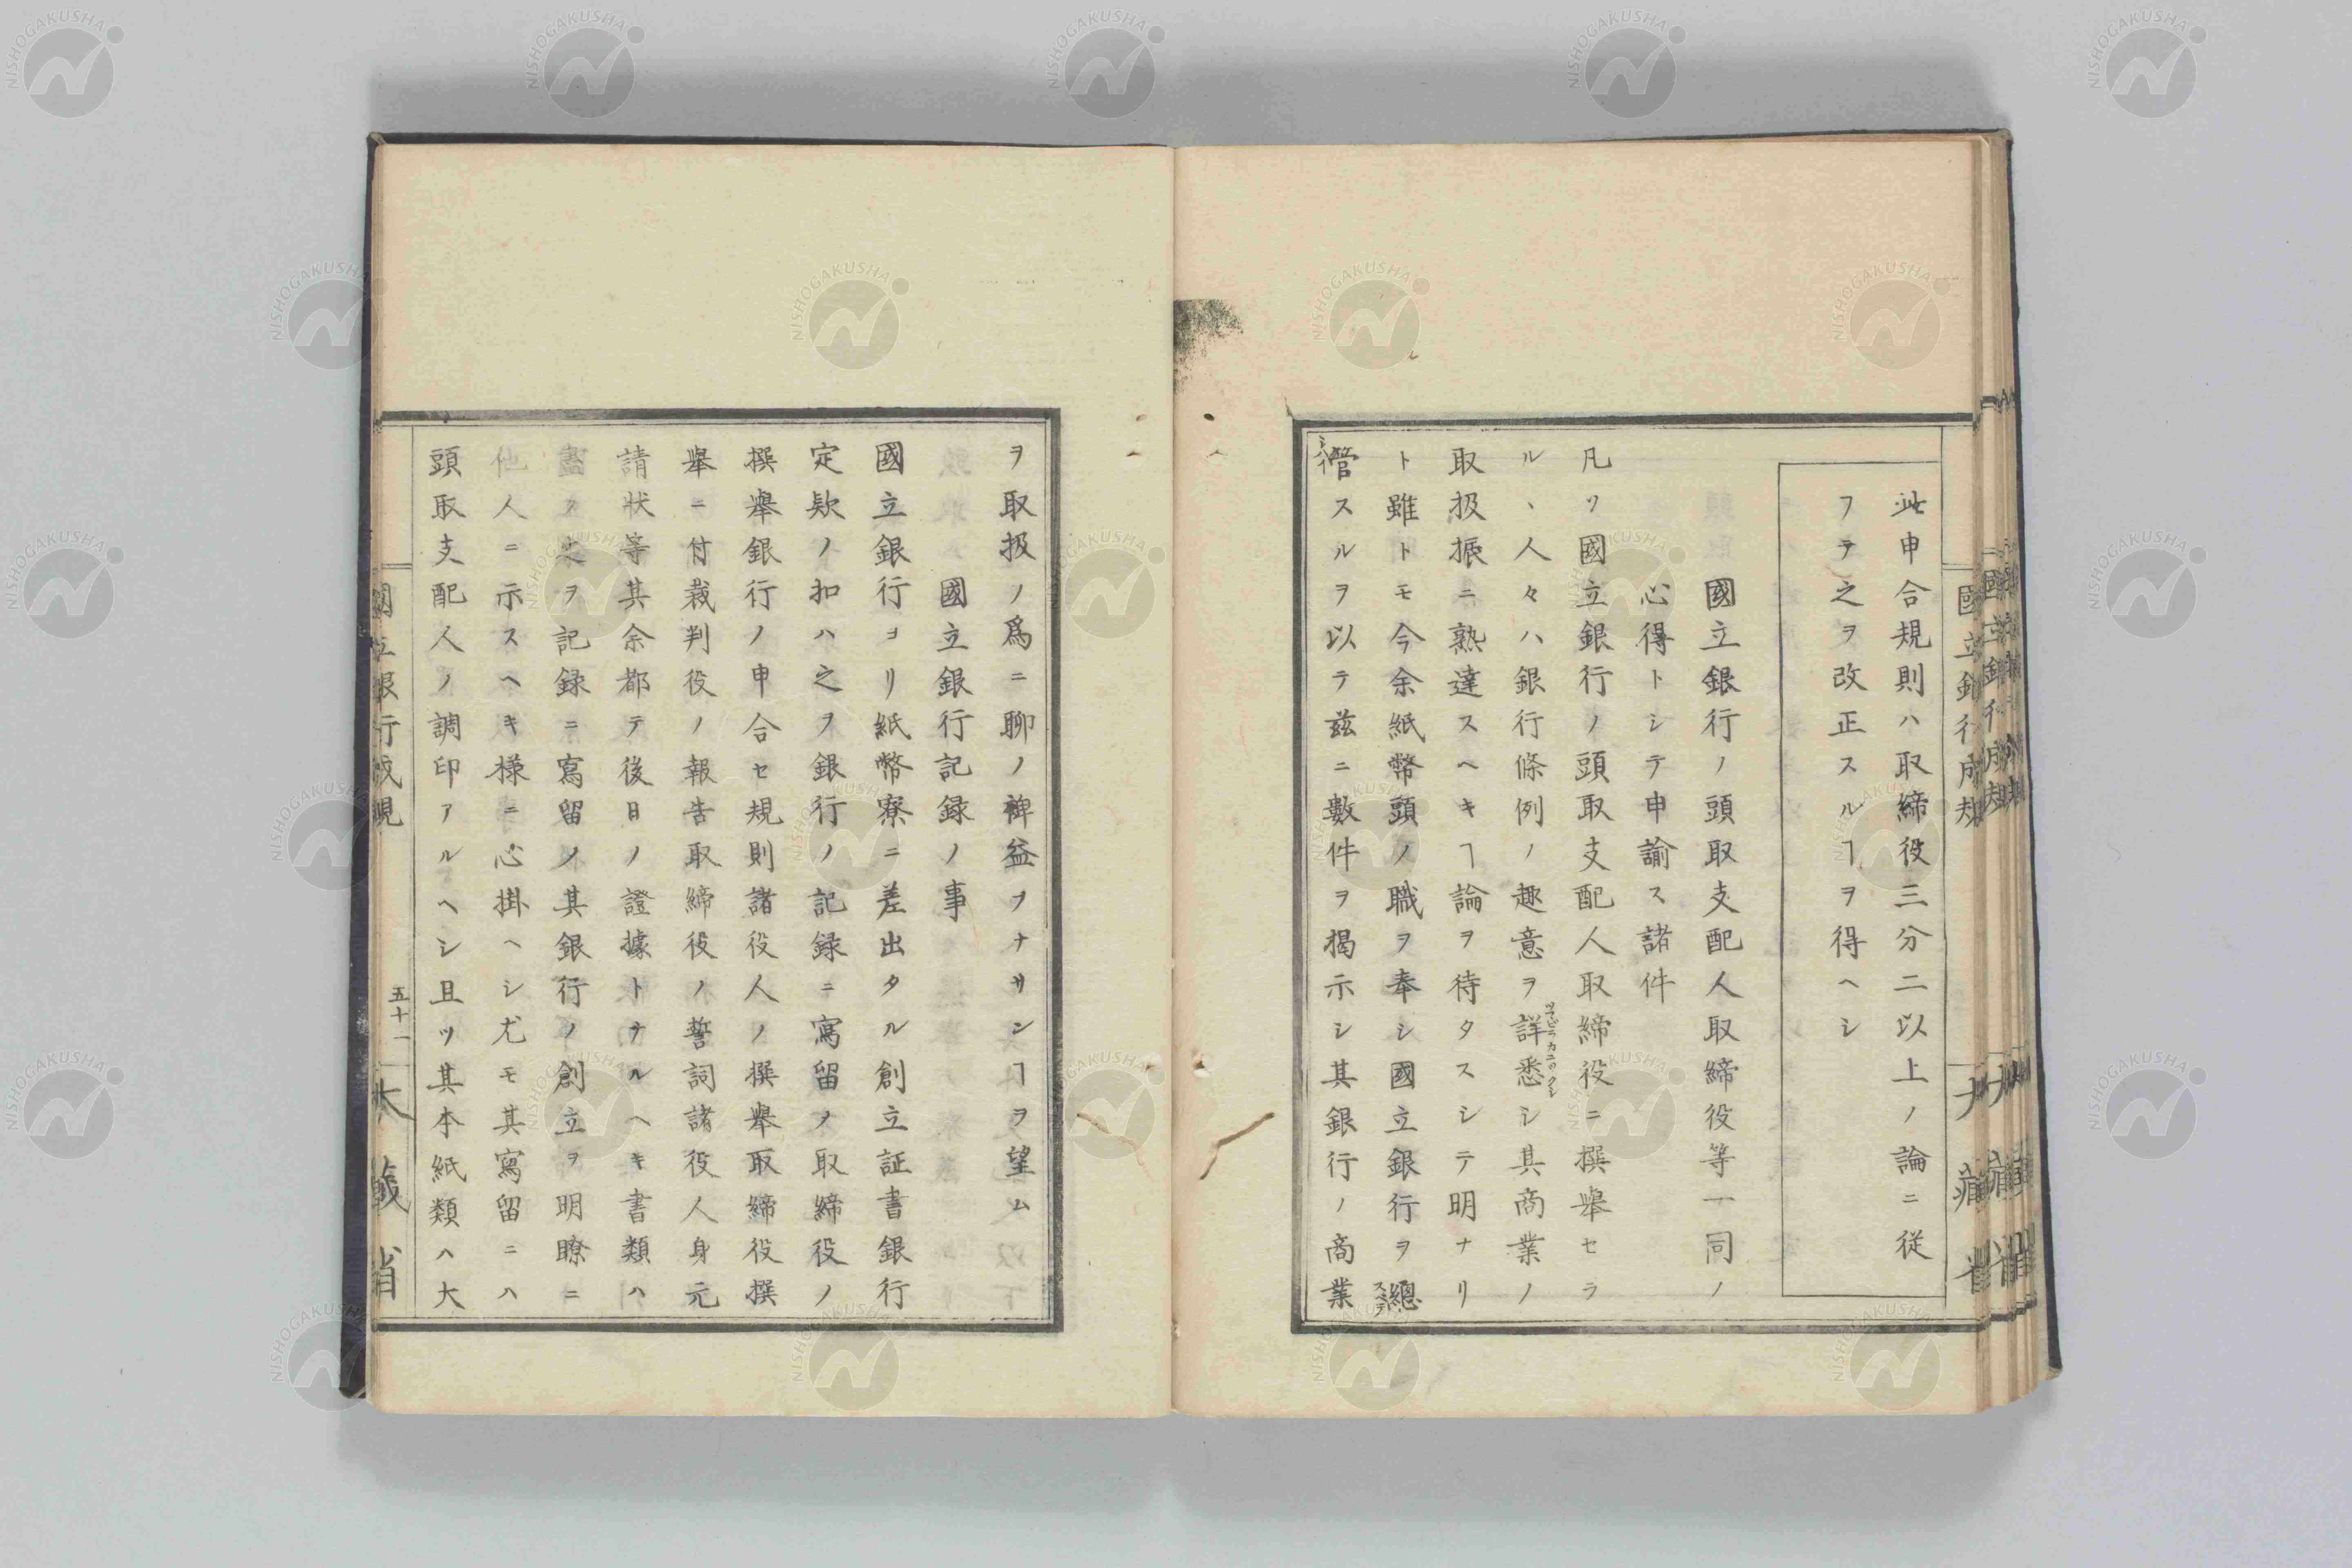 此申合規則ハ取締役三分二以上ノ論ニ従
フテ之ヲ改正スルヿヲ得ヘシ
國立銀行ノ頭取支配人取締役等一同ノ
心得トシテ申諭ス諸件
凡ソ國立銀行ノ頭取支配人取締役ニ撰擧セラ
ルヽ人々ハ銀行條例ノ趣意ヲ詳悉シ其商業ノ
取扱振ニ熟達スヘキヿ論ヲ待タスシテ明ナリ
ト雖トモ今余紙幣頭ノ職ヲ奉シ國立銀行ヲ總
管スルヲ以テ茲ニ數件ヲ揭示シ其銀行ノ商業
ヲ取扱ノ爲ニ聊ノ裨益ヲナサンヿヲ望ム
國立銀行記録ノ事
國立銀行ヨリ紙幣寮ニ差出タル創立証書銀行
定欵ノ扣ハ之ヲ銀行ノ記録ニ寫留メ取締役ノ
撰擧銀行ノ申合セ規則諸役人ノ撰擧取締役撰
擧ニ付裁判役ノ報告取締役ノ誓詞諸役人身元
請状等其余都テ後日ノ證據トナルヘキ書類ハ
盡ク之ヲ記録ニ寫留メ其銀行ノ創立ヲ明瞭ニ
他人ニ示スヘキ様ニ心掛ヘシ尤モ其寫留ニハ
頭取支配人ノ調印アルヘシ且ツ其本紙類ハ大
國立銀行成規
五十一
大藏省
NISHOGAKUSHA